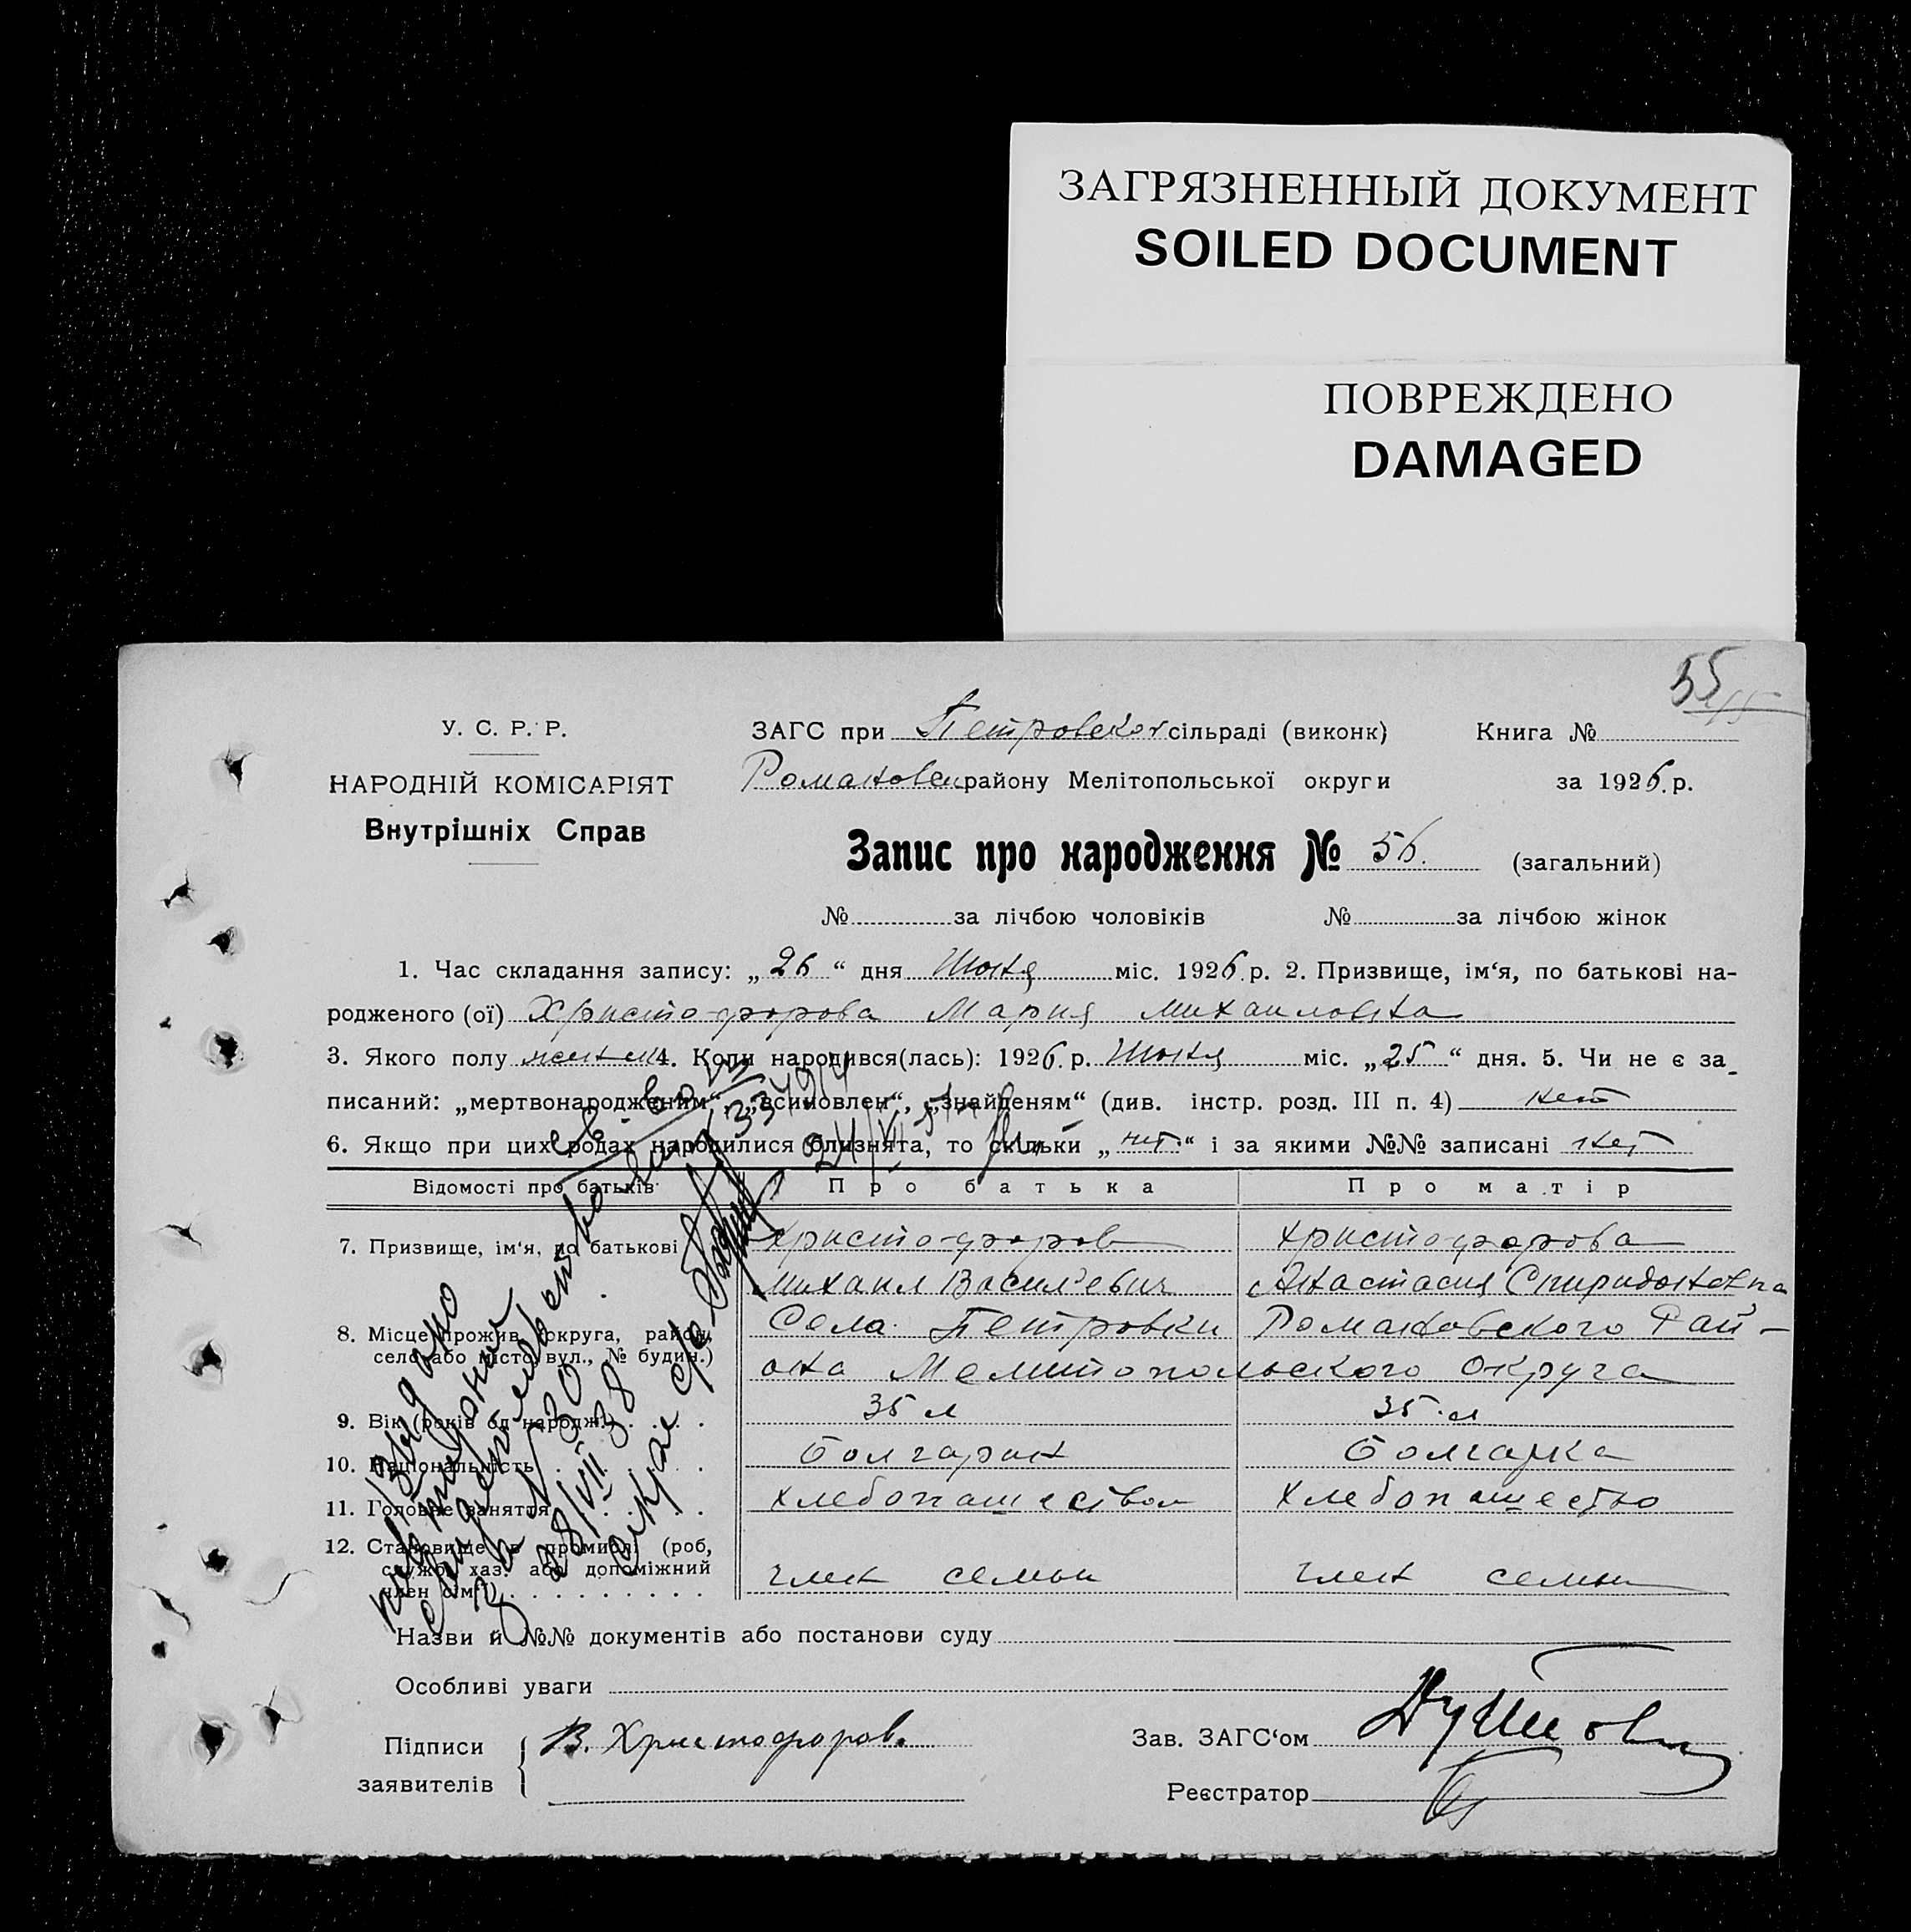 ЗАГРЯЗНЕННЫЙ ДОКУМЕНТ
SOILED DOCUMENT
ПОВРЕЖДЕНО
DAMAGED
55
У. С. Р. Р.
НАРОДНІЙ КОМІСАРІЯТ
Внутрішніх Справ
ЗАГС при Петровской сільраді (виконк) Книга №
Романовск району Мелітопольської округи за 1926 р.
Запис про народження № 56. (загальний)
№ за лічбою чоловіків № за лічбою жінок
1. Час складання запису: „26“ дня Июня міс. 1926 р. 2. Призвище, ім‘я, по батькові на-
родженого (ої) Христофорова Мария Михаиловна
3. Якого полу женск 4. Коли народився(лась): 1926 р. Июня міс. „25“ дня. 5. Чи не є за
писаний: „мертвонародженим“, „всиновлен“, „знайденям“ (див. інстр. розд. III п. 4) нет
6. Якщо при цих родах народилися близнята, то скільки „нет“ і за якими №№ записані нет
Відомості про батьків Про батька Про матір
7. Призвище, ім‘я, по батькові Христофоров Христофорова
Михаил Васил‘евич Анастасия Спиридоновна
8. Місце прожив. (округа, район, Села Петровки Романовского Рай-
село або місто, вул., № будин.) она Мелитопольского Округа
9. Вік (років од народж.) 35 л 35 л
10. Національність болгарин болгарка
11. Головне заняття хлебопашеством хлебопашество
12. Становище в промислі (роб,
службі, хаз. або допоміжний
член сім‘ї) член семьи член семьи
Назви й №№ документів або постанови суду
Особливі уваги
Підписи
заявителів
В. Христофоров.
Зав. ЗАГС‘ом
Реєстратор
28/VIII 38